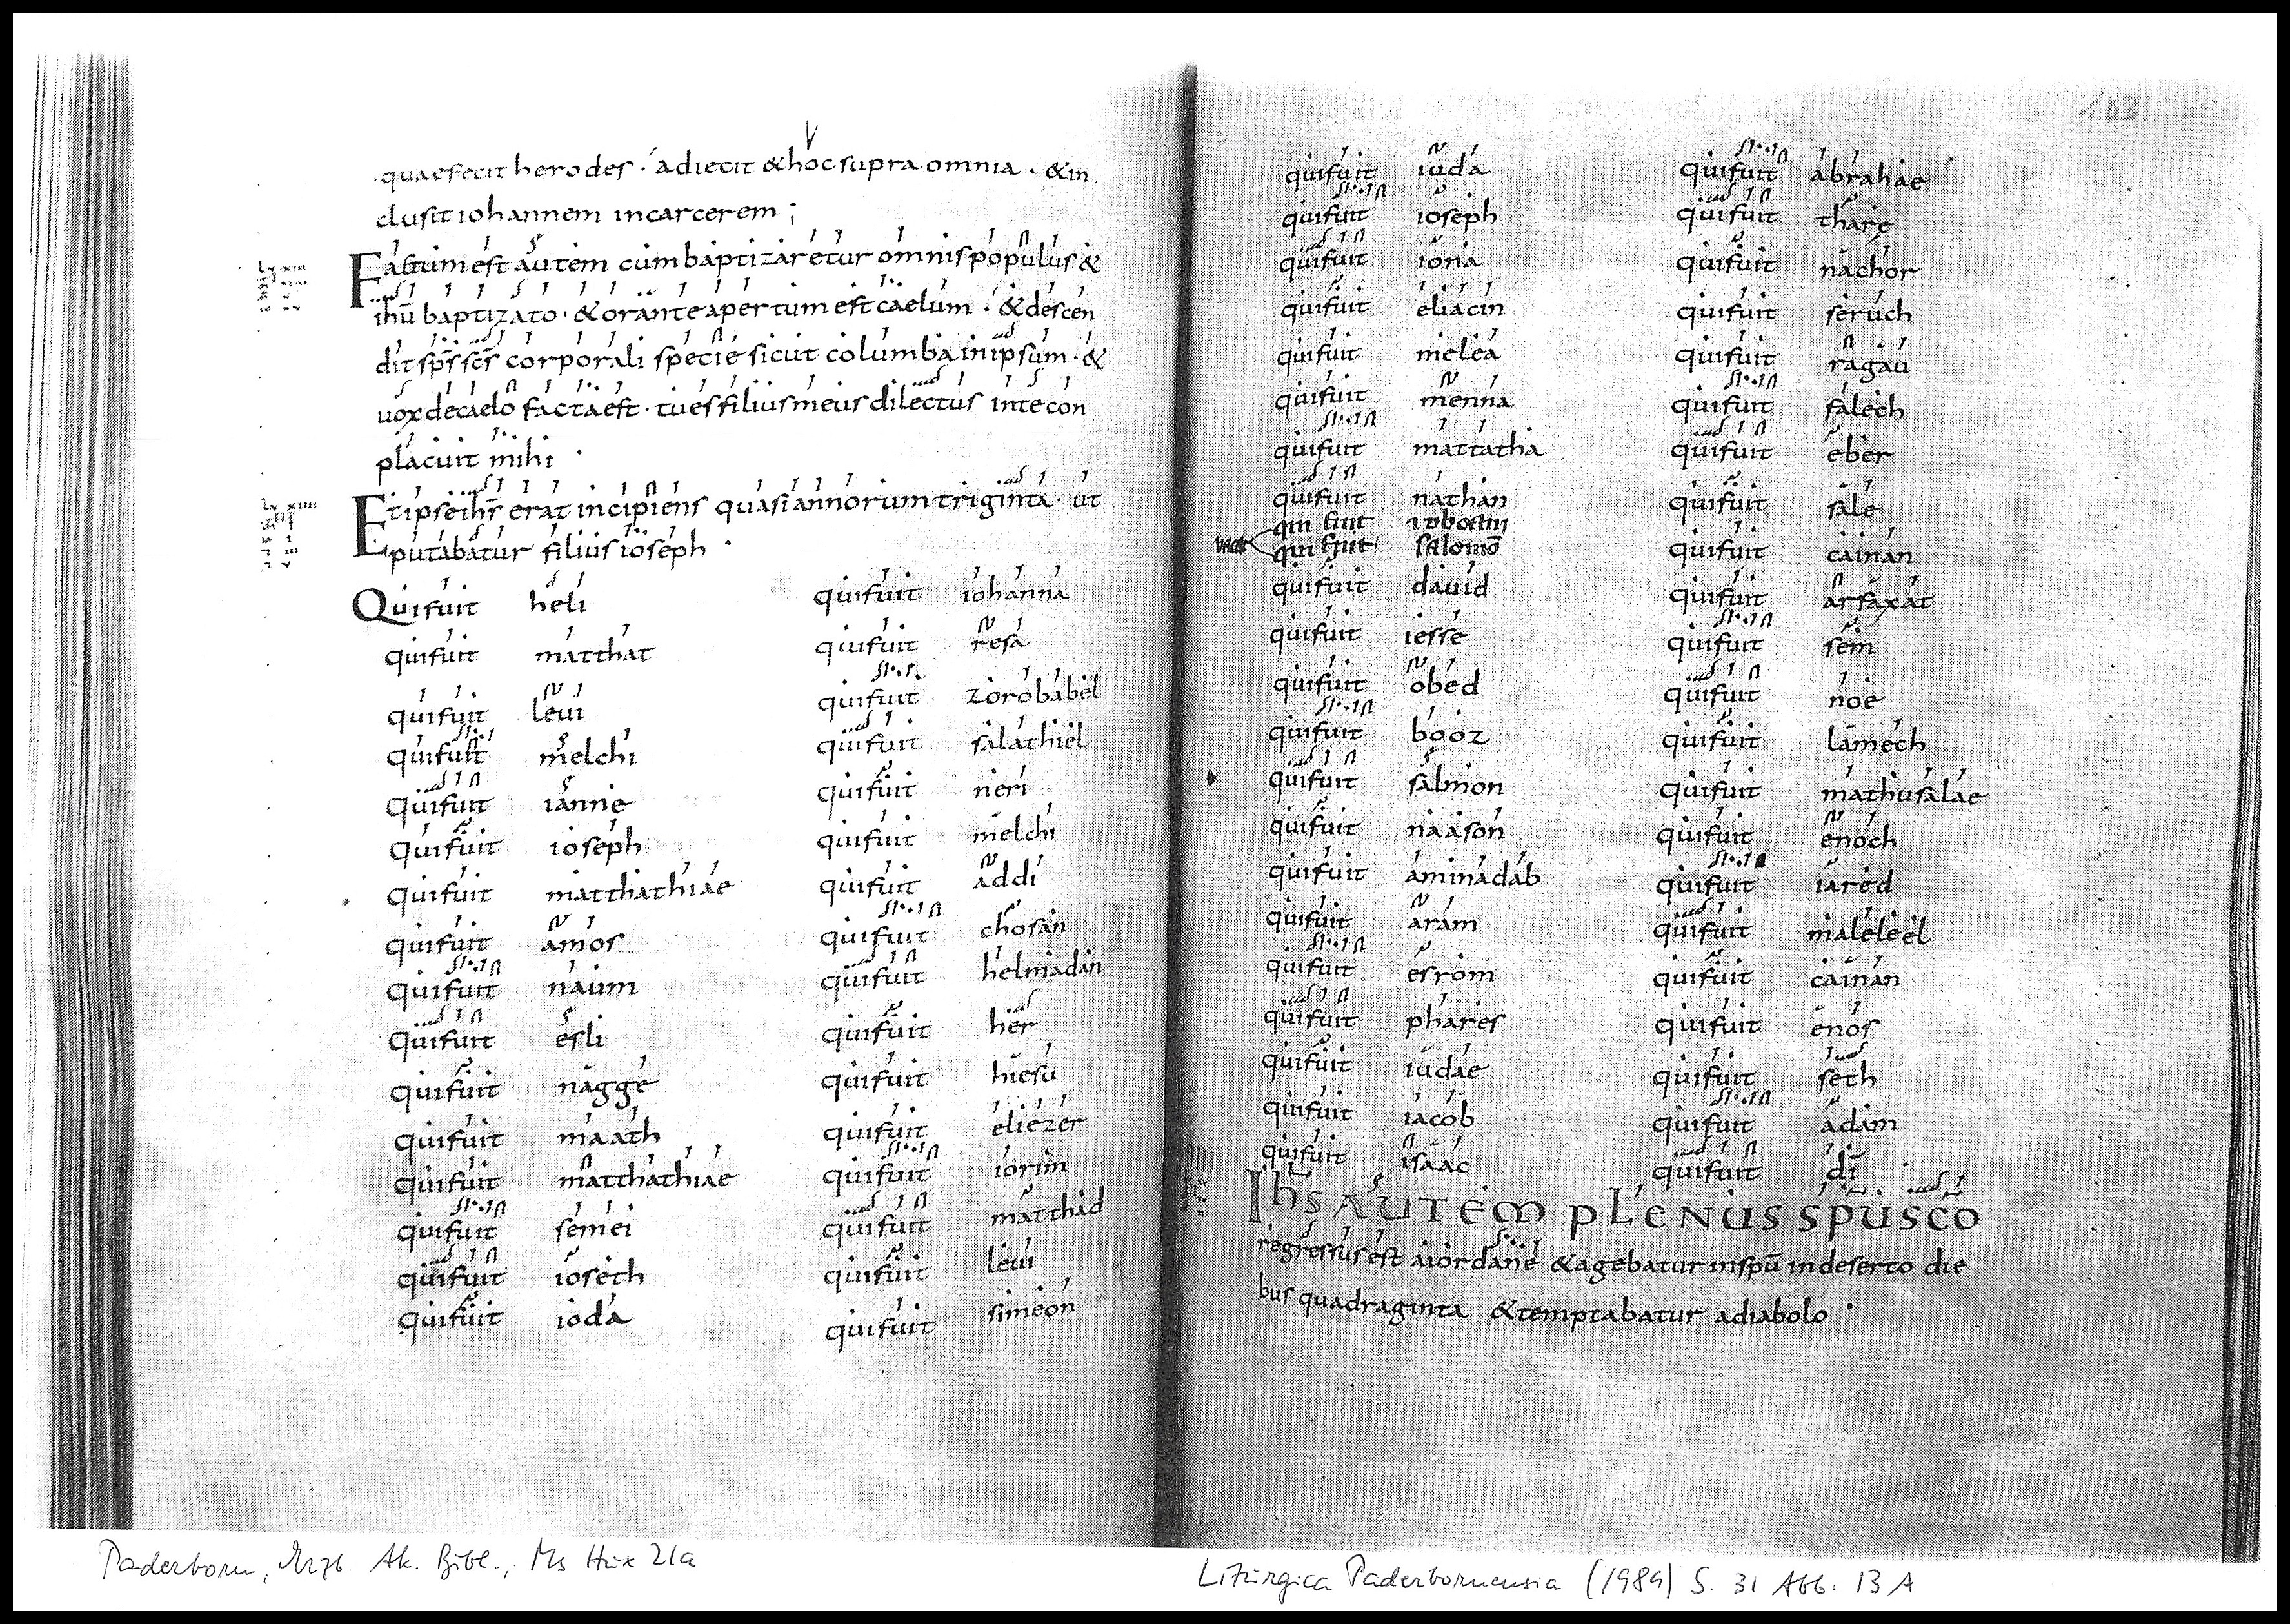 163
quaefecit herodes · adiecit &hoc supra omnia · &in
clusit iohannem incarcerem ;
Factum est autem cum baptizaretur omnis populus &
ihū baptizato · & orante apertum est caelum · & descen
dit sp̄s sc̄s corporali specie sicut columba in ipsum · &
uox decaelo facta est · tu es filius meus dilectus in te con
placuit mihi ·
Et ipse ihs̄ erat incipiens quasi annorum triginta · ut
putabatur filius ioseph ·
Qui fuit heli
qui fuit matthat
qui fuit leui
qui fuit melchi
qui fuit ianne
qui fuit ioseph
qui fuit matthathiae
qui fuit amos
qui fuit naum
qui fuit esli
qui fuit nagge
qui fuit maath
qui fuit matthathiae
qui fuit semei
qui fuit ioseth
qui fuit ioda
qui fuit iohanna
qui fuit resa
qui fuit zorobabel
qui fuit salathiel
qui fuit neri
qui fuit melchi
qui fuit addi
qui fuit chosan
qui fuit helmadan
qui fuit her
qui fuit hiesu
qui fuit eliezer
qui fuit iorim
qui fuit matthad
qui fuit leui
qui fuit simeon
qui fuit iuda
qui fuit ioseph
qui fuit iona
qui fuit eliacin
qui fuit melea
qui fuit menna
qui fuit mattatha
qui fuit nathan
qui fuit
qui fuit salomō
qui fuit dauid
qui fuit iesse
qui fuit obed
qui fuit booz
qui fuit salmon
qui fuit naason
qui fuit aminadab
qui fuit aram
qui fuit esrom
qui fuit phares
qui fuit iudae
qui fuit iacob
qui fuit isaac
qui fuit abrahae
qui fuit tharę
qui fuit nachor
qui fuit seruch
qui fuit ragau
qui fuit falech
qui fuit eber
qui fuit sale
qui fuit cainan
qui fuit arfaxat
qui fuit sem
qui fuit noe
qui fuit lamech
qui fuit mathusalae
qui fuit enoch
qui fuit iared
qui fuit maleleel
qui fuit cainan
qui fuit enos
qui fuit seth
qui fuit adam
qui fuit dī
Ihs AUTEM PLENUS SPU SCO
regressus est aiordane & agebatur inspū in deserto die
bus quadraginta & temptabatur adiabolo ·
Paderborn, Erzb. Ak. Bibl., Ms Hux 21a
Liturgica Paderbornensia (1989) S. 31 Abb. 13 A